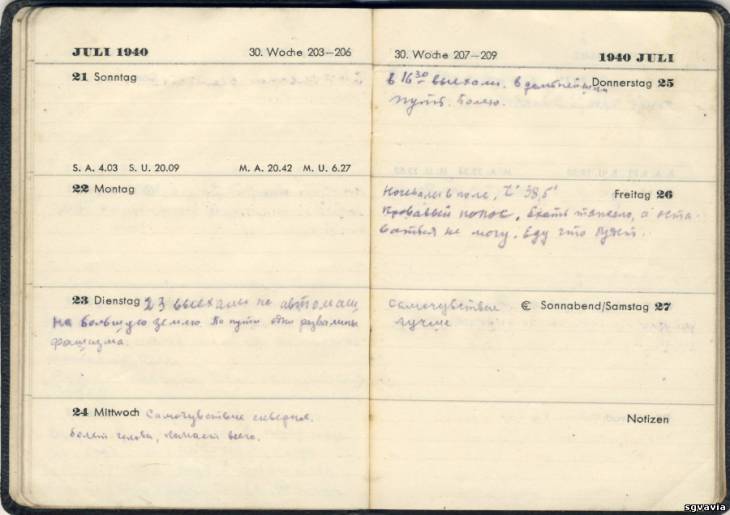 JULI 1940 30. Woche 203–206
21 Sonntag
S. A. 4.03 S. U. 20.09 M. A. 20.42 M. U. 6.27
22 Montag
23 Dienstag 23 выехали на автомаш
на большую землю По пути одни развалины
фашизма.
24 Mittwoch Самочувствие скверное.
Болит голова, всего.
30. Woche 207–209 1940 JULI
в 16 30 выехали. в дальнейший Donnerstag 25
путь. Болею.
Ночевали в поле, t° 38,5° Freitag 26
Кровавый понос, Ехать тяжело, а оста-
ваться не могу. Еду что будет.
Самочувствие Sonnabend/Samstag 27
лучше
Notizen
sgvavia